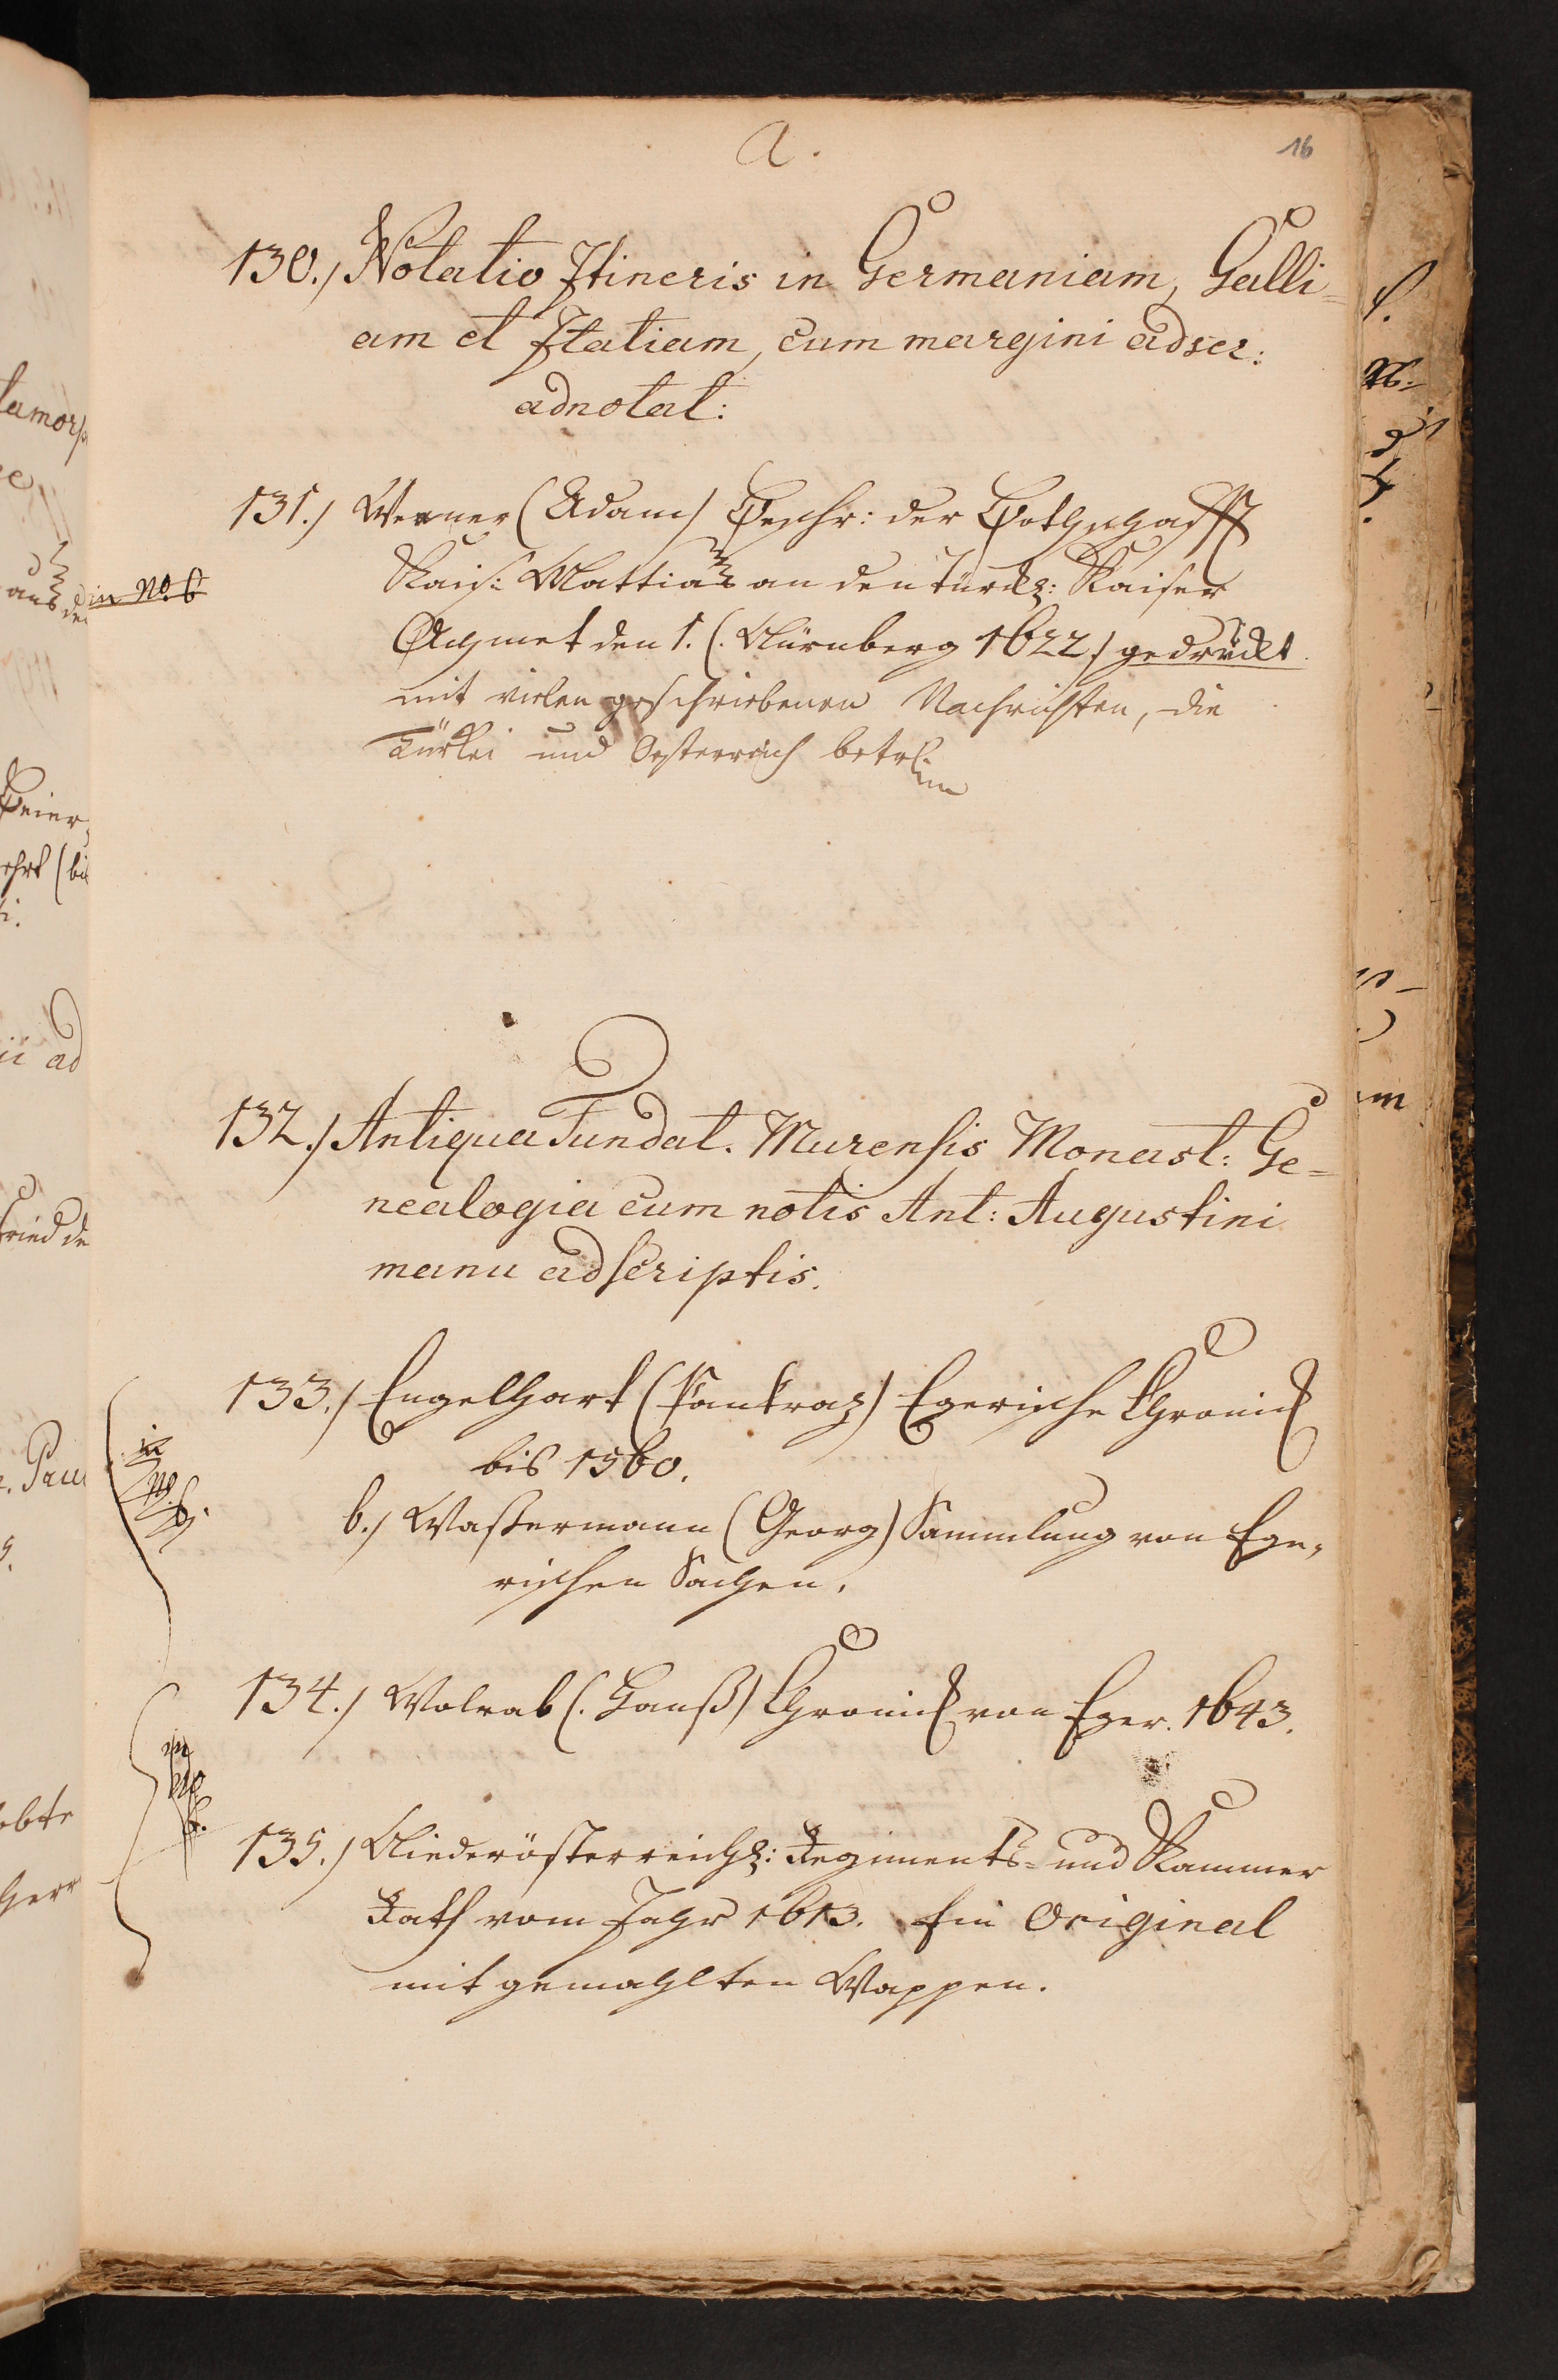 a.
16
130.) Notatio Itineris in Germaniam, Galli=
am et Italiam, cum margini adscr:
adnotat:
131.) Werner (Adam) Beschr: der Bothschafft
Kais: Mattias an den türck: Kaiser
Achmet den 1. (. Nürnberg 1622.) gedruckt.
mit vielen geschriebenen Nachrichten, die
Türkei und Oesterreich betr.
in No. 6
132.) Antiqua Fundat. Murensis Monast: Ge=
nealogia cum notis Ant: Augustini
manu adscriptis.
133.) Engelhart (Pankraz) Egerische Chronick
bis 1560.
in No. 6.
b.) Wassermann (Georg) Sammlung von Ege=
rischen Sachen.
134.) Wolrab (. Hanß) Chronick von Eger. 1643.
in No 6.
135.) Niederösterreich: Regiments= und Kammer
Rath vom Jahr 1613. Ein Original
mit gemahlten Wappen.